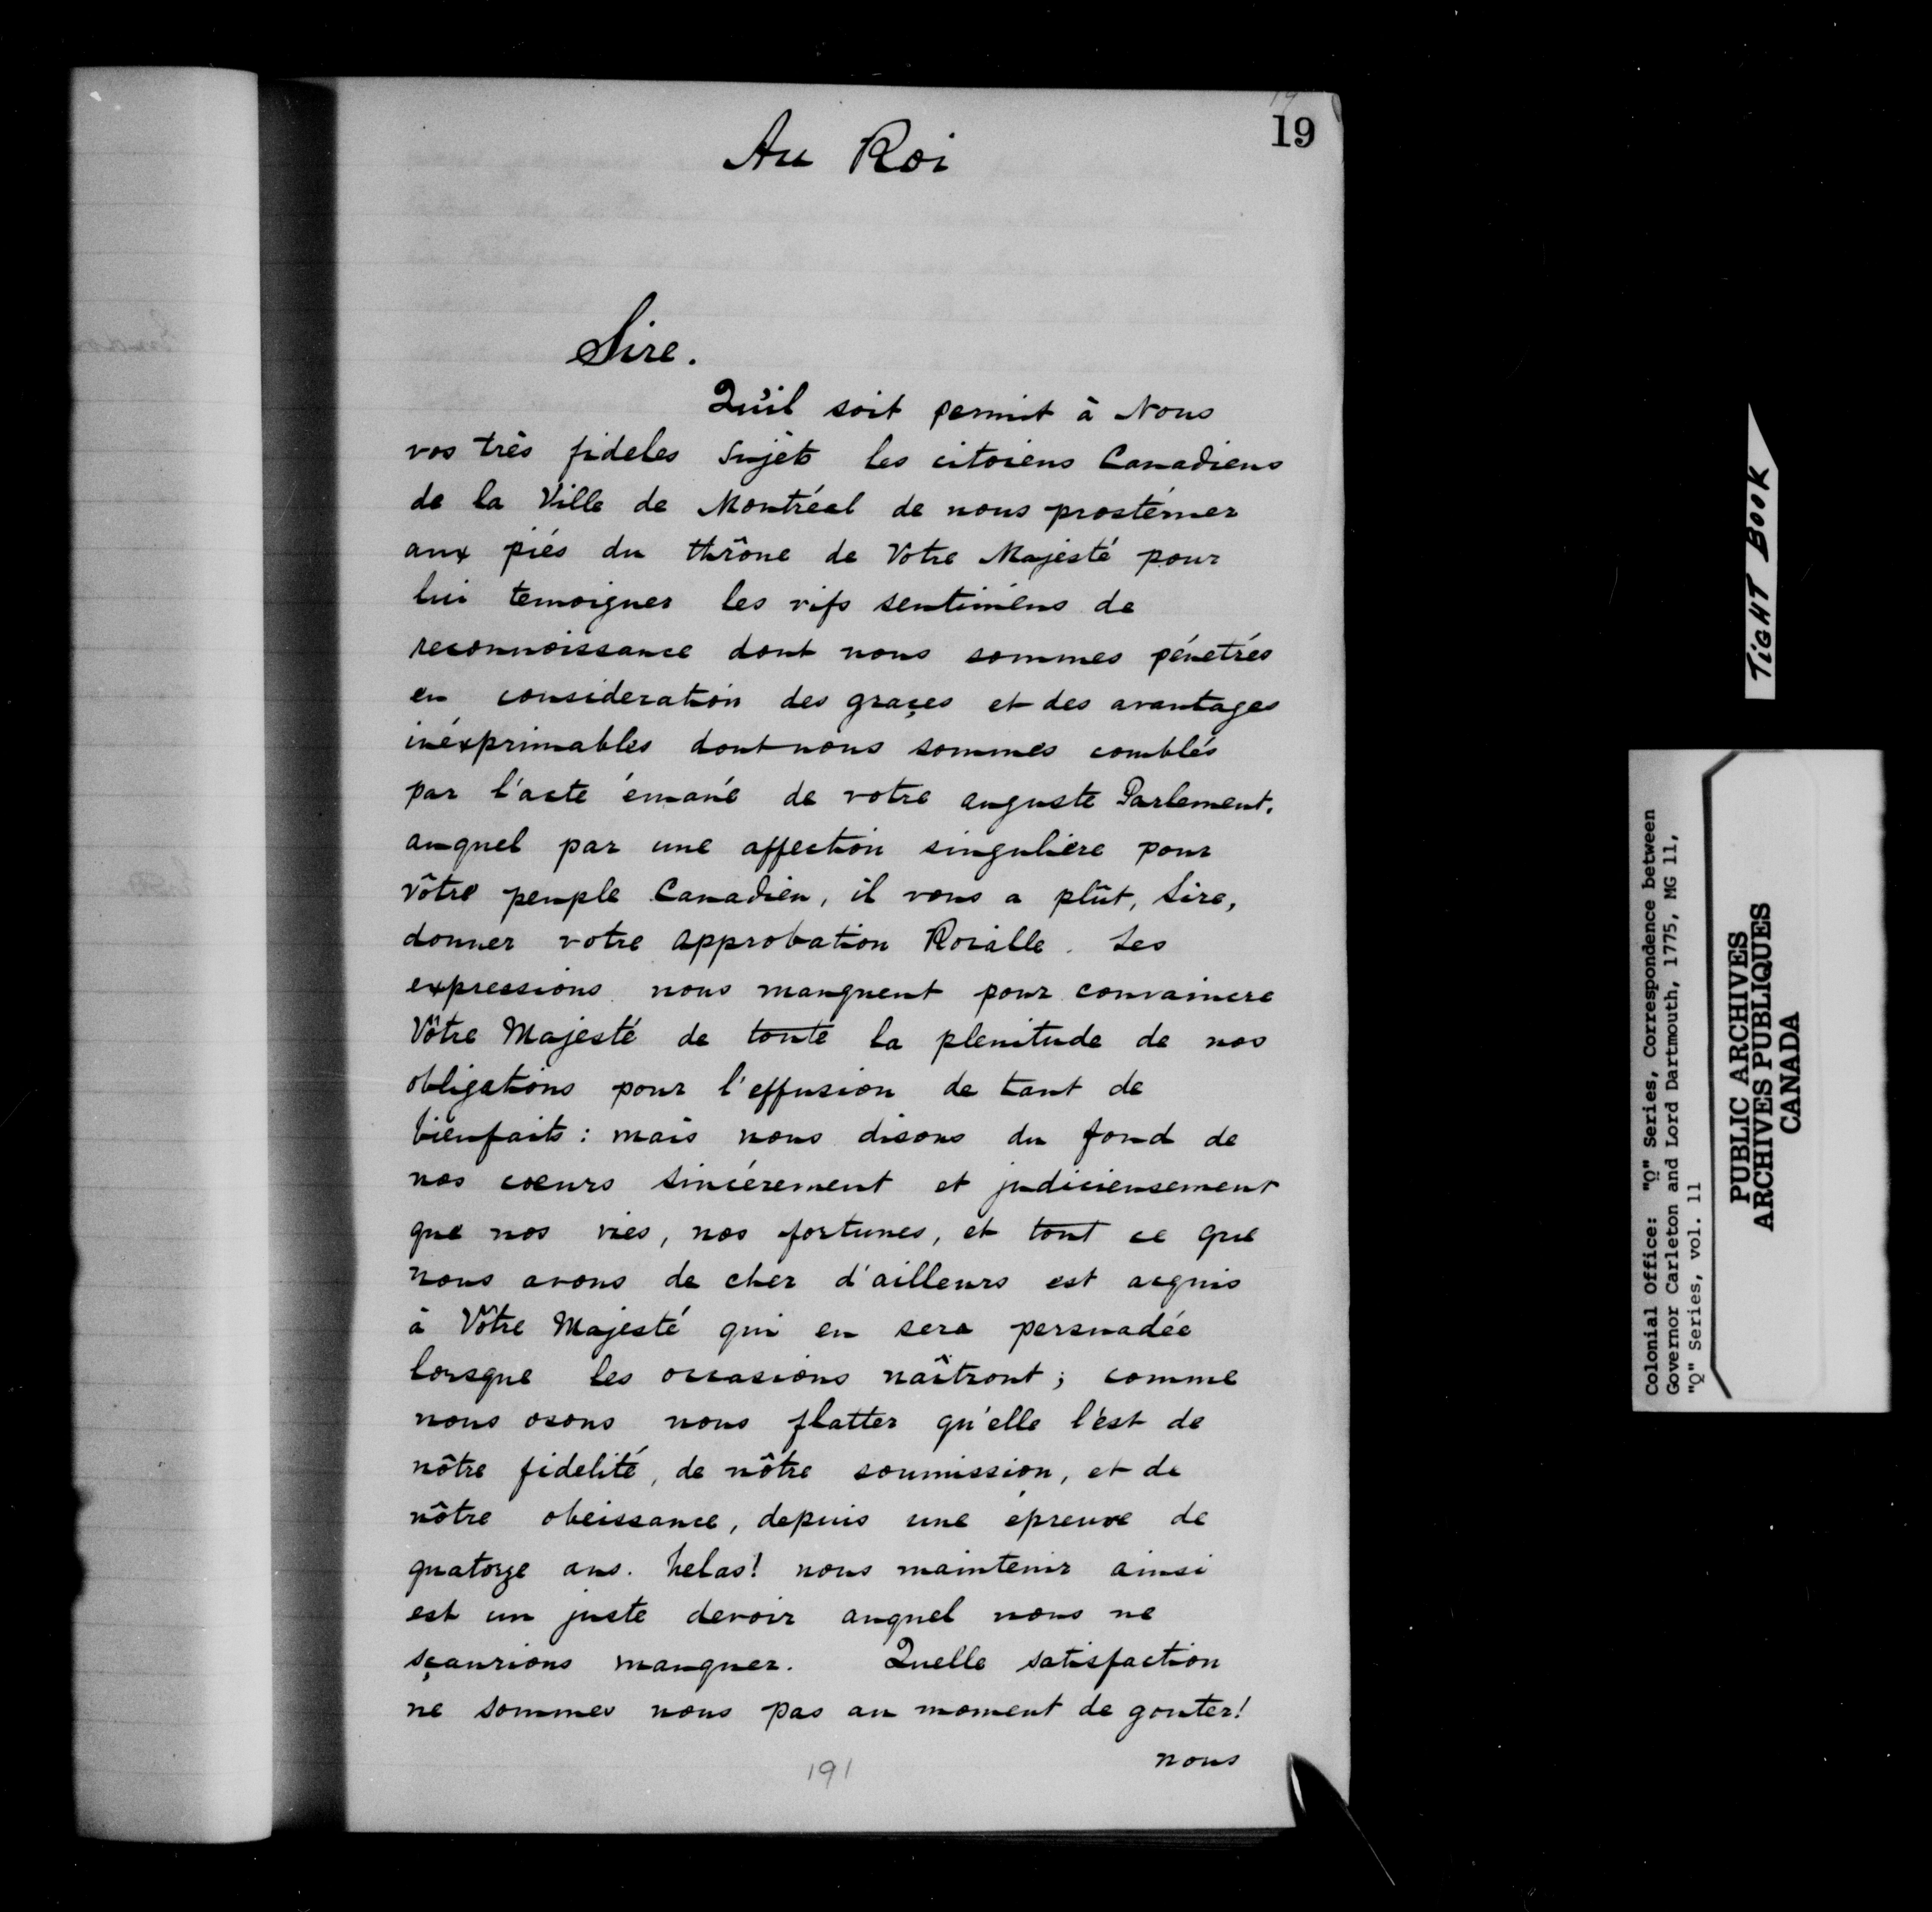 19
Au Roi
Sire.
Qu'il soit permit à Nous
vos très fideles Sujèts les citoiens Canadiens
de la Ville de Montréal de nous prostérner
aux piés du thrône de Votre Majesté pour
lui temoigner les vifs sentiméns de
reconnoissance dont nous sommes pénétrés
en consideration des graçes et des avantages
inéxprimables dont nous sommes comblés
par l'acte émané de votre auguste Parlement.
auquel par une affection singulière pour
vôtre peuple Canadien, il vous a plût, Sire,
donner votre approbation Roialle. Les
expressions nous manquent pour convaincre
Vôtre Majesté de toute la plenitude de nos
obligations pour l'effusion de tant de
bienfaits : mais nous disons du fond de
nos cœurs sincérement et judicieusement
que nos vies, nos fortunes, et tout ce que
nous avons de cher d'ailleurs est acquis
à Vôtre Majesté qui en sera persuadée
lorsque les occasions naîtront ; comme
nous osons nous flatter qu'elle l'est de
nôtre fidelité, de nôtre soumission, et de
nôtre obeissance, depuis une épreuve de
quatorze ans. helas! nous maintenir ainsi
est un juste devoir auquel nous ne
sçaurions manquer. Quelle satisfaction
ne sommes nous pas au moment de gouter!
nous
191
TIGHT BOOK
Colonial Office: "Q" Series, Correspondence between
Governor Carleton and Lord Dartmouth, 1775, MG 11,
"Q" Series, vol. 11
PUBLIC ARCHIVES
ARCHIVES PUBLIQUES
CANADA